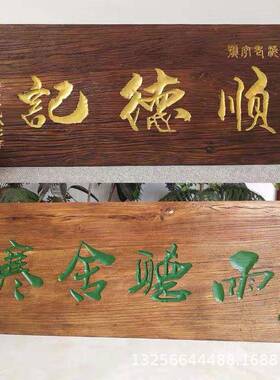 順德記
寒舍聽雨
13256644488.1688